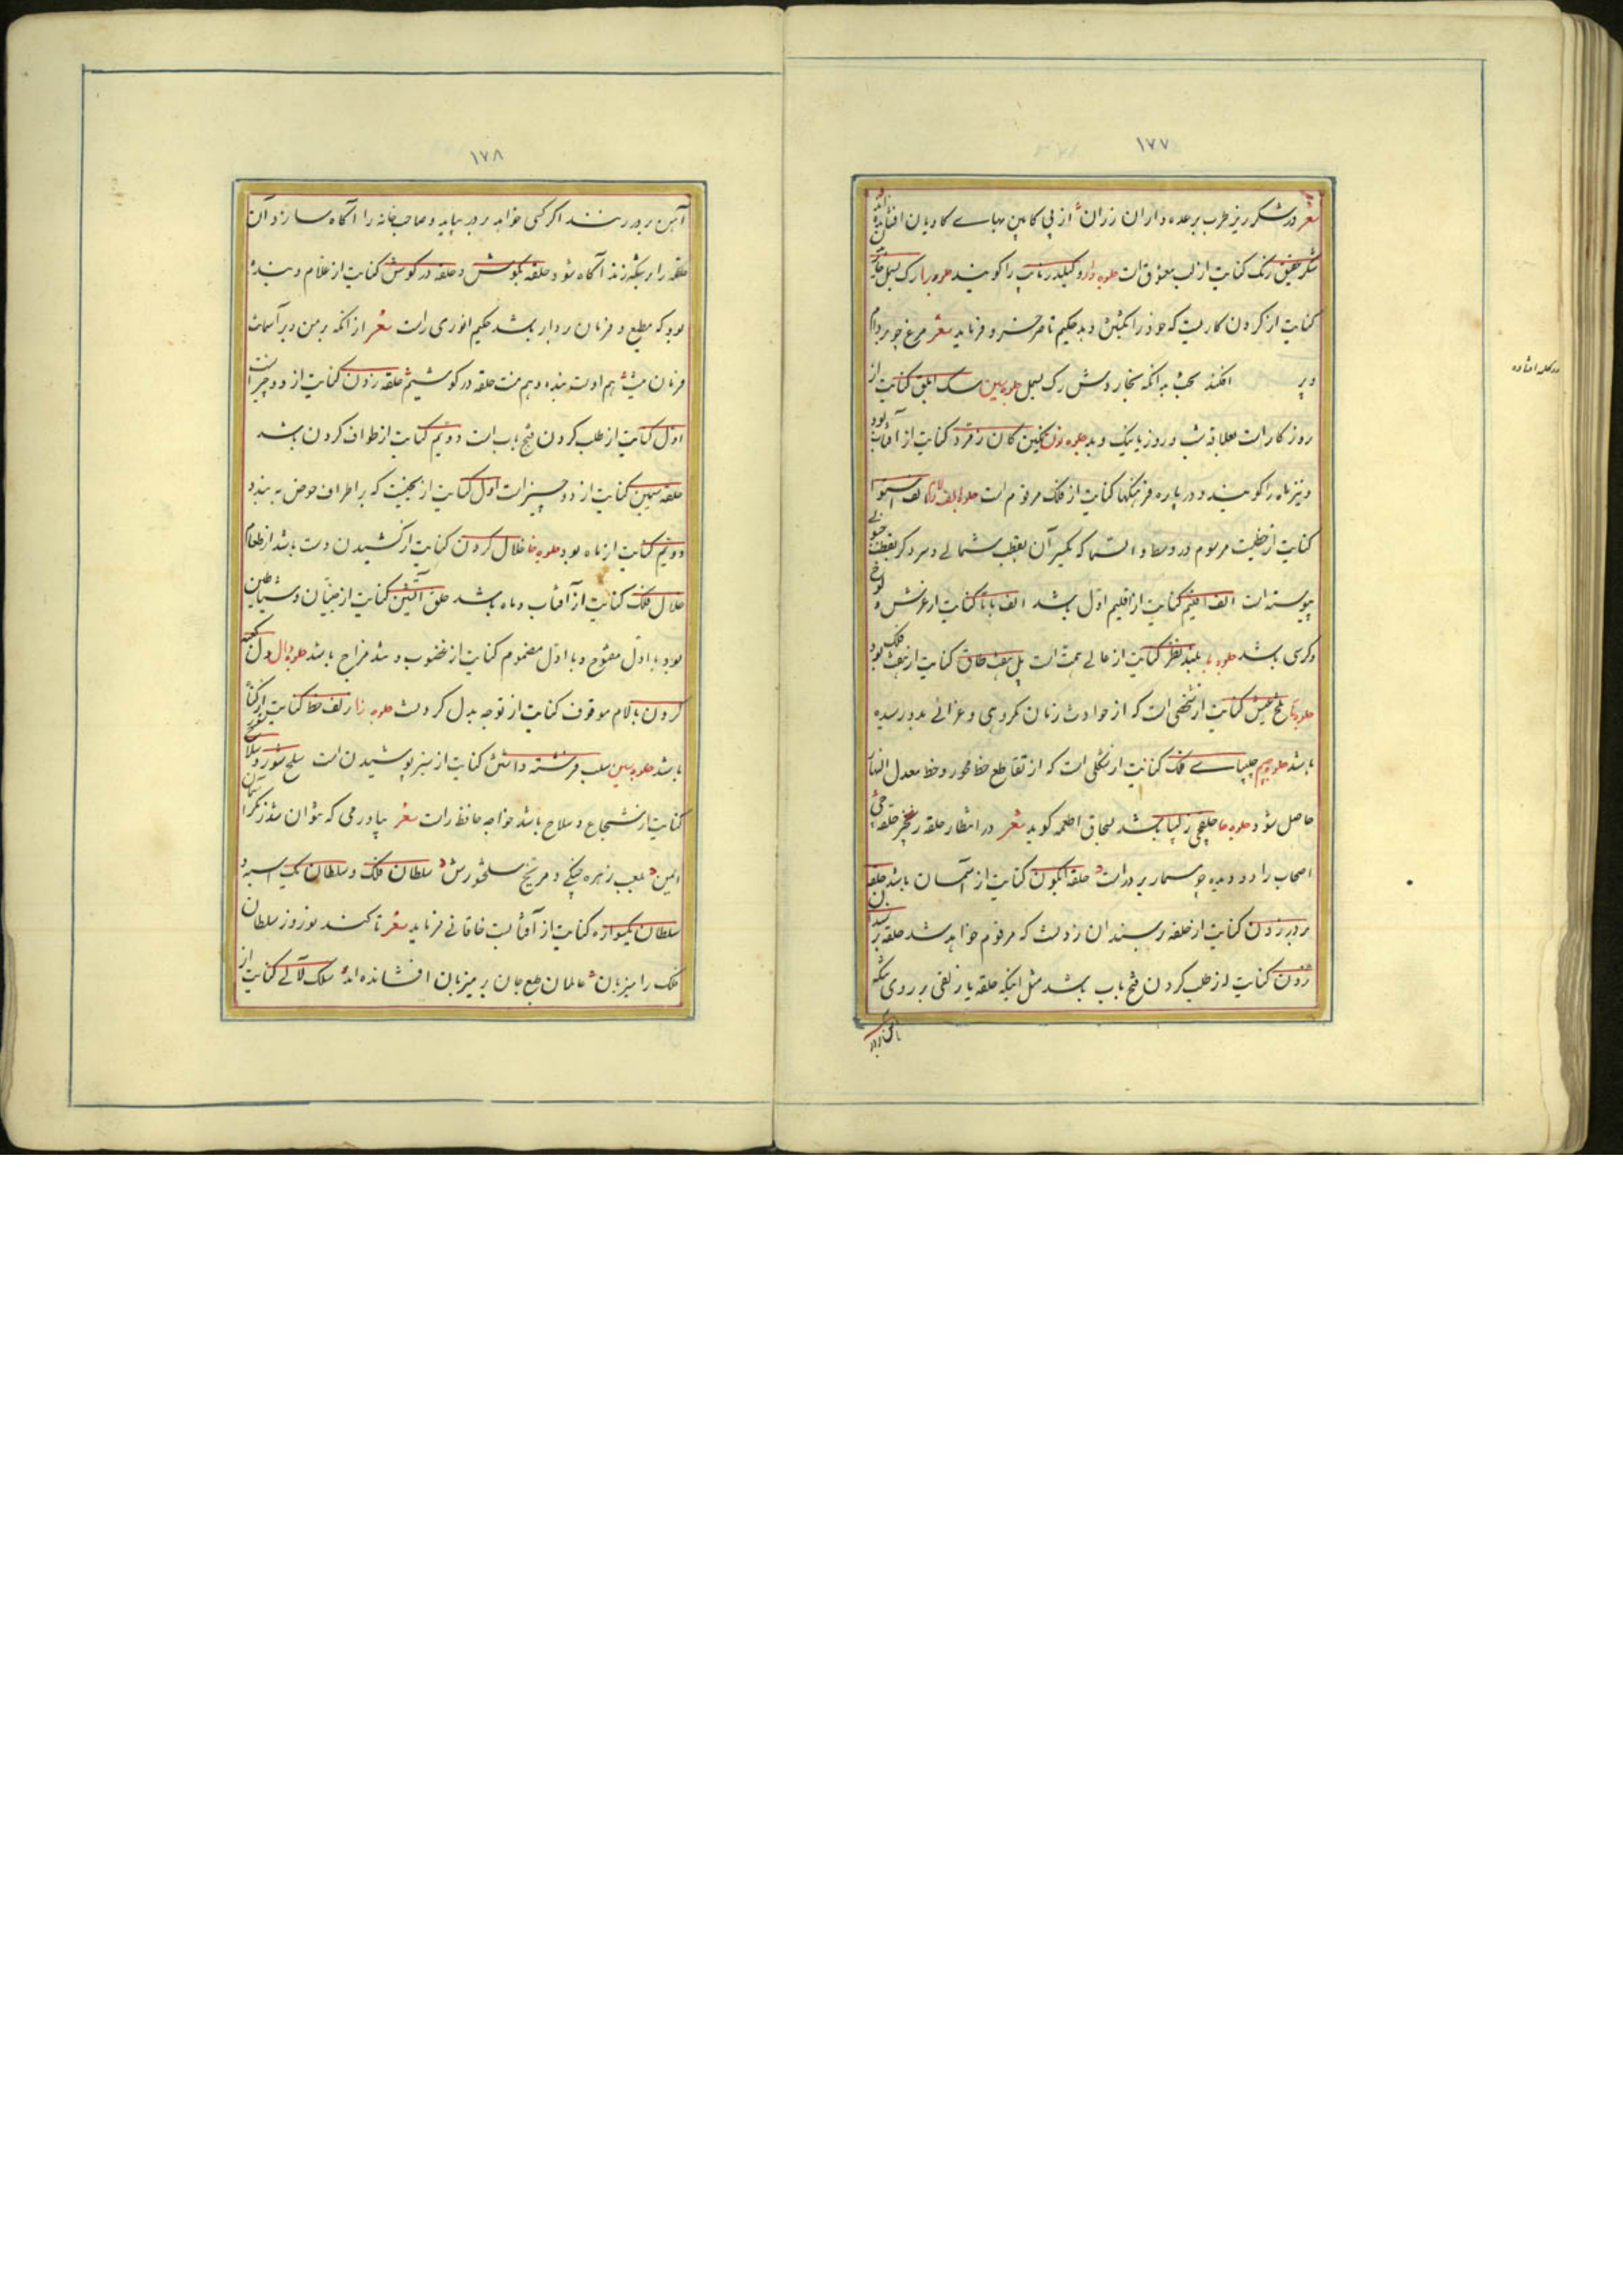 ۱۷۷
شعر در شکر ریز طرب بر عده داران رزان از پی کابین بهای کاویان افشانده‌اند
شکر عقیق رنگ کنایت از لب معشوق است جلوه دار و کلید رنات را گویند جلوه را رک بسمل خاریدن
کنایت از کردن کاریست که خود را بکشتن دهد حکیم ناصر خسرو فرماید شعر مرغ چو بر دام
و بر افکند بخت به آنکه بخارد شش رک بسمل جلوه سین سک ابلق کنایت از
روزگار است بعلاقه شب و روز یا نیک و بد جلوه نون نگین کان زمرد کنایت از آفتاب بود
و نیز ماه را گویند و در پاره فرهنگها کنایت از فلک مرقوم است جلوه الف الف استوا
کنایت از خطیست مرسوم در وسط السما که یکسر آن بقطب شمالی و سر دیگر بقطب جنوبی
پیوسته است الف اقلیم کنایت از اقلیم اول باشد الف با تا کنایت از عرش و لوح
و کرسی باشد جلوه با بلند نظر کنایت از عالی همت است پل هفت طاق کنایت از هفت فلک بود
جلوه تا تلخ عیش کنایت از شخصی است که از حوادث زمان مکروهی و عزائی بدو رسیده
باشد جلوه جیم چلیپای فلک کنایت از شکلی است که از تقاطع خط محور و خط معدل النهار
حاصل شود جلوه حا حلقچی زلیبا باشد بسحاق اطعمه گوید شعر در انتظار حلقه زنجیر حلقچی
اصحاب را دو دیده چو مسمار بر در است حلقه آبگون کنایت از آسمان باشد حلقه
بر در زدن کنایت از حلقه بر سندان زدنست که مرقوم خواهد شد حلقه بر سندان
زدن کنایت از طلب کردن فتح باب باشد مثل اینکه حلقه یا زلفی بر روی تنکه
آهن بر در
در کله افتاده
۱۷۸
آهن بر در زنند اگر کسی خواهد بر در بیاید و صاحب خانه را آگاه سازد آن
حلقه را بر تنکه زند آگاه شود حلقه بگوش و حلقه در گوش کنایت از غلام و بنده
بود که مطیع و فرمان بردار باشد حکیم انوری راست شعر از آنکه بر من و بر آسمانت
فرمان هم اوت بنده و هم منت حلقه در گوشیم حلقه زدن کنایت از دو چیز است
اول کنایت از طلب کردن فتح باب است دویم کنایت از طواف کردن باشد
حلقه سیمین کنایت از دو چیز است اول کنایت از یخیست که بر اطراف حوض به بندد
دویم کنایت از ماه بود جلوه خا خلال کردن کنایت از کشیدن دست باشد از طعام
حلال فلک کنایت از آفتاب و ماه باشد خلق آتشین کنایت از جنیان و شیاطین
بود با اول مفتوح و با اول مضموم کنایت از غضوب و تند مزاج باشد جلوه دال دل تکیه
کردن با لام موقوف کنایت از توجه بدل کردنست جلوه زا زلف خط کنایت از کتابت
باشد جلوه سین سلب فرشته داشتن کنایت از سبز پوشیدن است سلح شور و سلاح شور
کنایت از شجاع و سلاح باشد خواجه حافظ راست شعر بیاور می که نتوان شد ز مکر آسمان
ایمن بلعب زهره چنگی و مریخ سلحشورش سلطان فلک و سلطان یک اسبه و
سلطان یکسواره کنایت از آفتابست خاقانی فرماید شعر تا کند نوروز سلطان
فلک را میزبان عالمان طبع جان بر میزبان افشانده‌اند سلک لآلی کنایت از